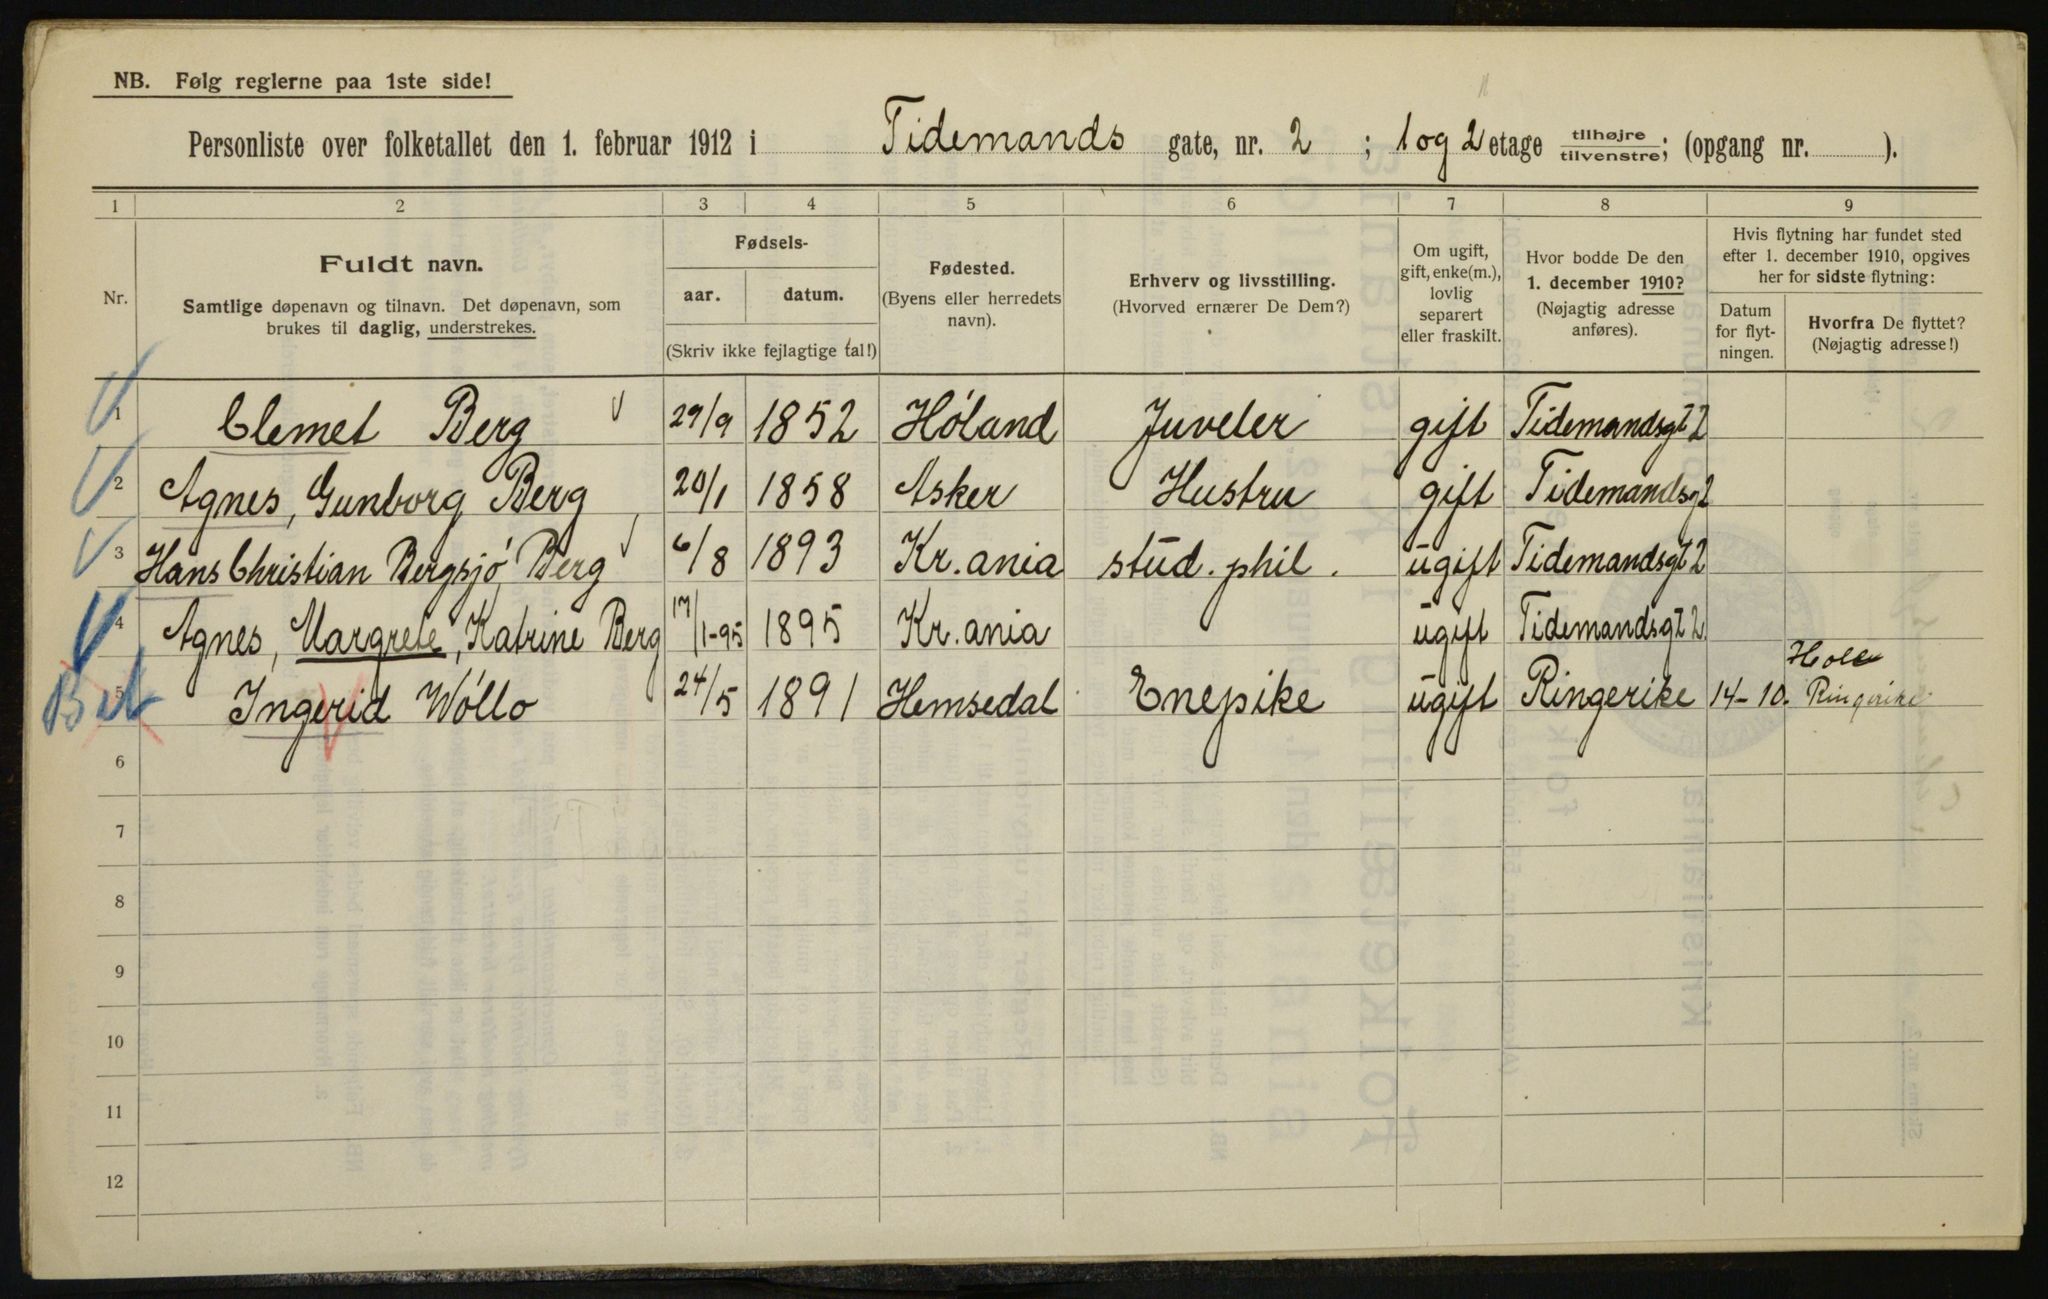 NB. Følg reglerne paa 1ste side!
Personliste over folketallet den 1. februar 1912 i Tidemands gate, nr. 2 ; 1 og 2 etage tilhøjre/tilvenstre; (opgang nr. ).
1 2 3 4 5 6 7 8 9
Nr.
Fuldt navn.
Samtlige døpenavn og tilnavn. Det døpenavn, som
brukes til daglig, understrekes.
Fødsels-
aar. datum.
(Skriv ikke fejlagtige tal!)
Fødested.
(Byens eller herredets
navn).
Erhverv og livsstilling.
(Hvorved ernærer De Dem?)
Om ugift,
gift, enke(m.),
lovlig
separert
eller fraskilt.
Hvor bodde De den
1. december 1910?
(Nøjagtig adresse
anføres).
Hvis flytning har fundet sted
efter 1. december 1910, opgives
her for sidste flytning:
Datum
for flyt-
ningen.
Hvorfra De flyttet?
(Nøjagtig adresse!)
1 Clemet Berg 29/9 1852 Høland Juveler gift Tidemandsgt 2
2 Agnes, Gunborg Berg 20/1 1858 Asker Hustru gift Tidemandsg 2
3 Hans Christian Bergsjø Berg 6/8 1893 Kr.ania stud. phil. ugift Tidemandsgt 2
4 Agnes, Margrete, Katrine Berg 17/1-95 1895 Kr.ania ugift Tidemandsgt 2.
5 Ingerid Wøllo 24/5 1891 Hemsedal Enepike ugift Ringerike 14-10. Hole Ringerike
6
7
8
9
10
11
12